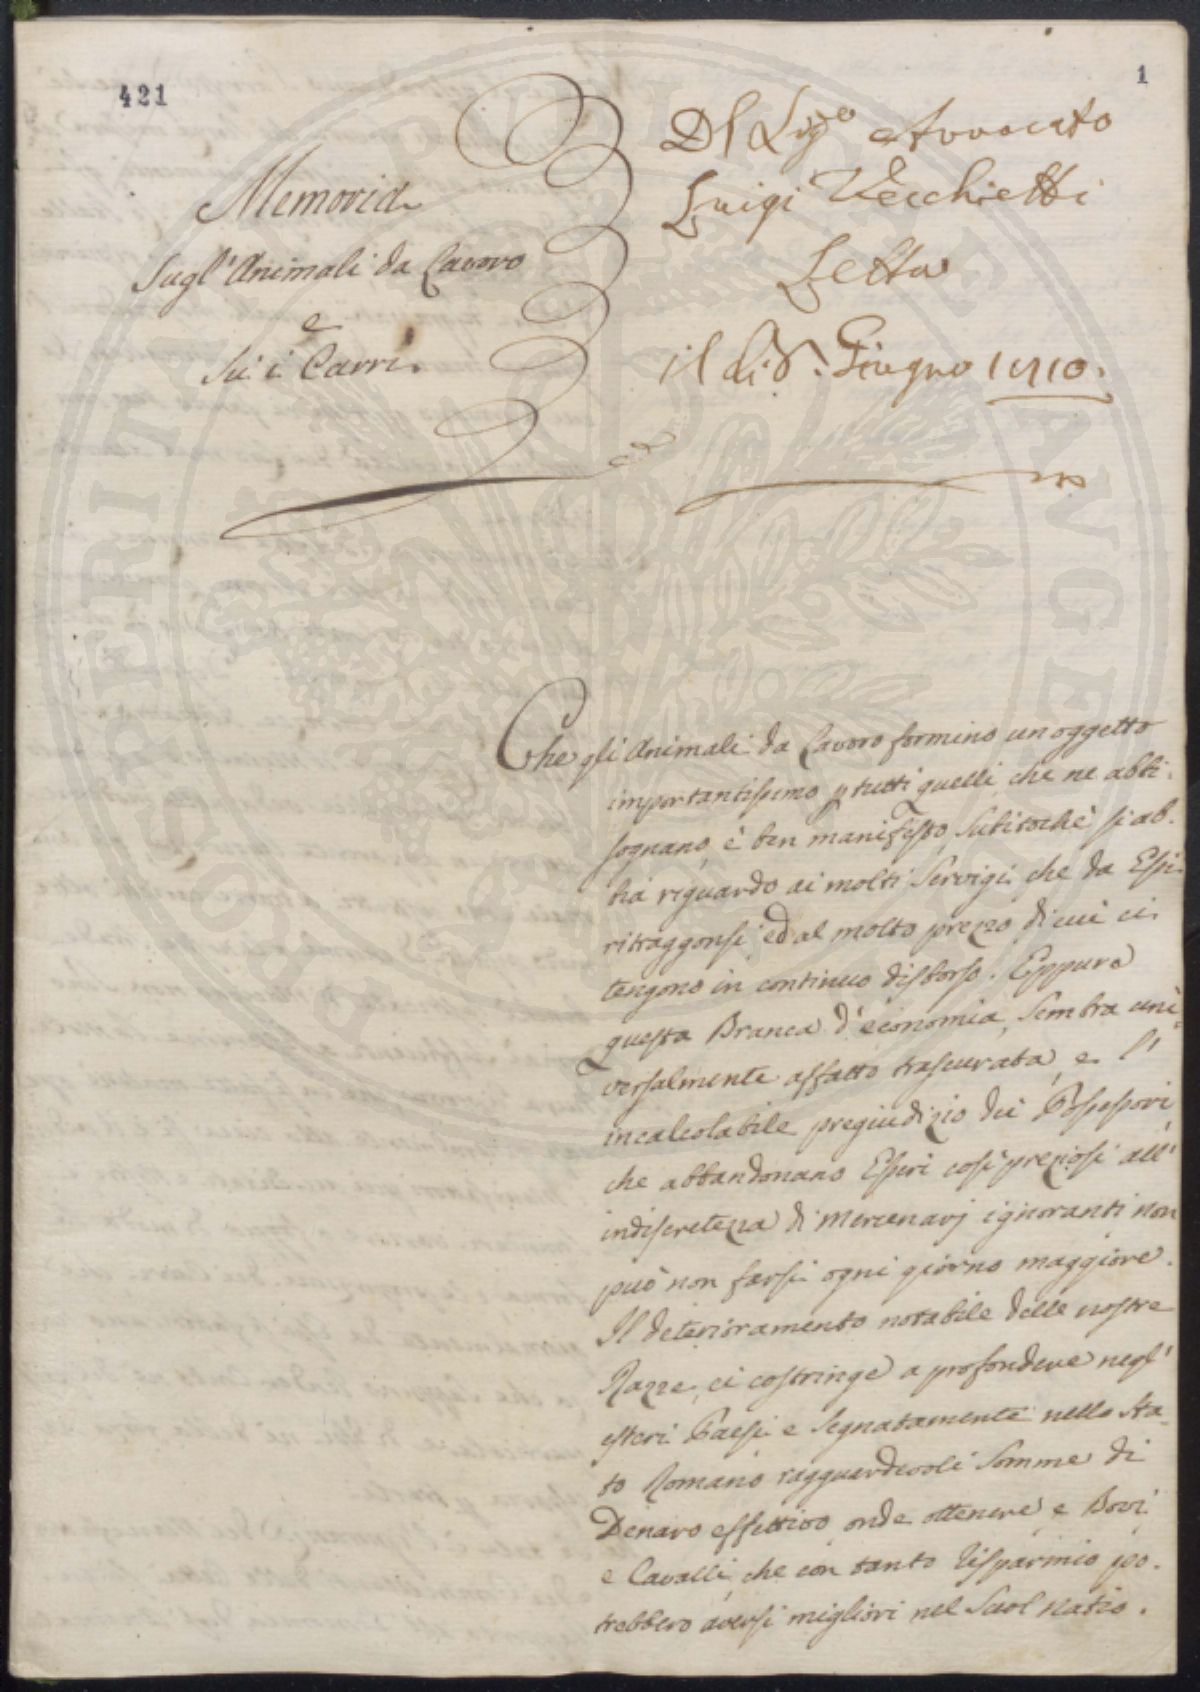 421
1
Memoria
Sugl'Animali da Lavoro
e
Su i Carri.
Del Sigre Avvocato
Luigi Vecchietti
Letta
il di Giugno
Che gli Animali da Lavoro formino un oggetto
importantissimo p tutti quelli che ne abbi-
sognano, è ben manifesto, subitochè si ab-
bia riguardo ai molti Servigi che da Essi
ritraggonsi, ed al molto prezzo di cui ci
tengono in continuo disborso. Eppure
questa Branca d'economia, Sembra uni-
versalmente affatto trascurata, e l'
incalcolabile pregiudizio dei Possessori
che abbandonano Esseri così preziosi all'
indiscretezza di Mercenarj ignoranti non
può non farsi ogni giorno maggiore.
Il deterioramento notabile delle nostre
Razze, ci costringe a profondere negl'
esteri Paesi e Segnatamente nello Sta-
to Romano ragguardevoli Somme di
Denaro effettivo onde ottenere e Bovi
e Cavalli, che con tanto risparmio po-
trebbero aversi migliori nel Suol natio.
PROSPERITATI PUBLICAE AUGENDAE